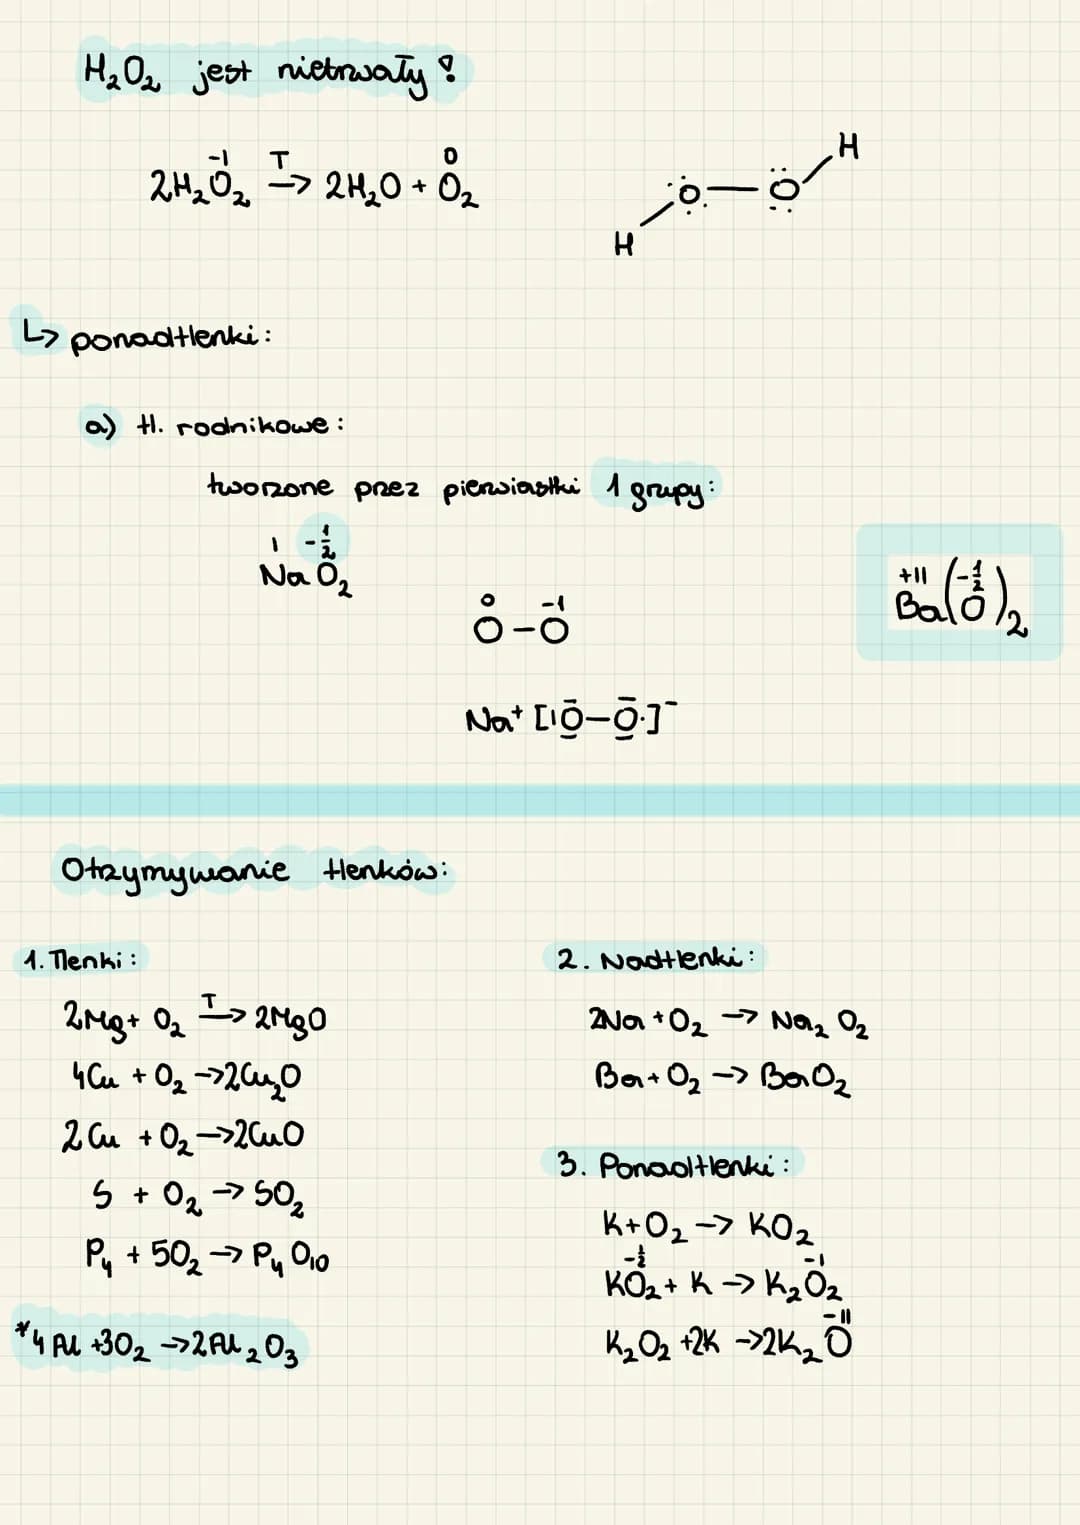 H₂O₂ jest nietrwały!
-1 T 0
2H₂O₂ → 2H₂O + O₂
H
O — O
H
↳ ponadtlenki:
a) tl. rodnikowe:
tworzone przez pierwiastki 1 grupy:
I -1/2
NaO₂
0 -1
O-O
+II -1/2
Ba(O)₂
Na⁺ [|O-O·]⁻
Otrzymywanie tlenków:
1. Tlenki:
2Mg + O₂ T→ 2MgO
4Cu + O₂ → 2Cu₂O
2Cu + O₂ → 2CuO
S + O₂ → SO₂
P₄ + 5O₂ → P₄O₁₀
*4Al + 3O₂ → 2Al₂O₃
2. Nadtlenki:
2Na + O₂ → Na₂O₂
Ba + O₂ → BaO₂
3. Ponadtlenki:
K + O₂ → KO₂
-1/2 -1
KO₂ + K → K₂O₂
-II
K₂O₂ + 2K → 2K₂O